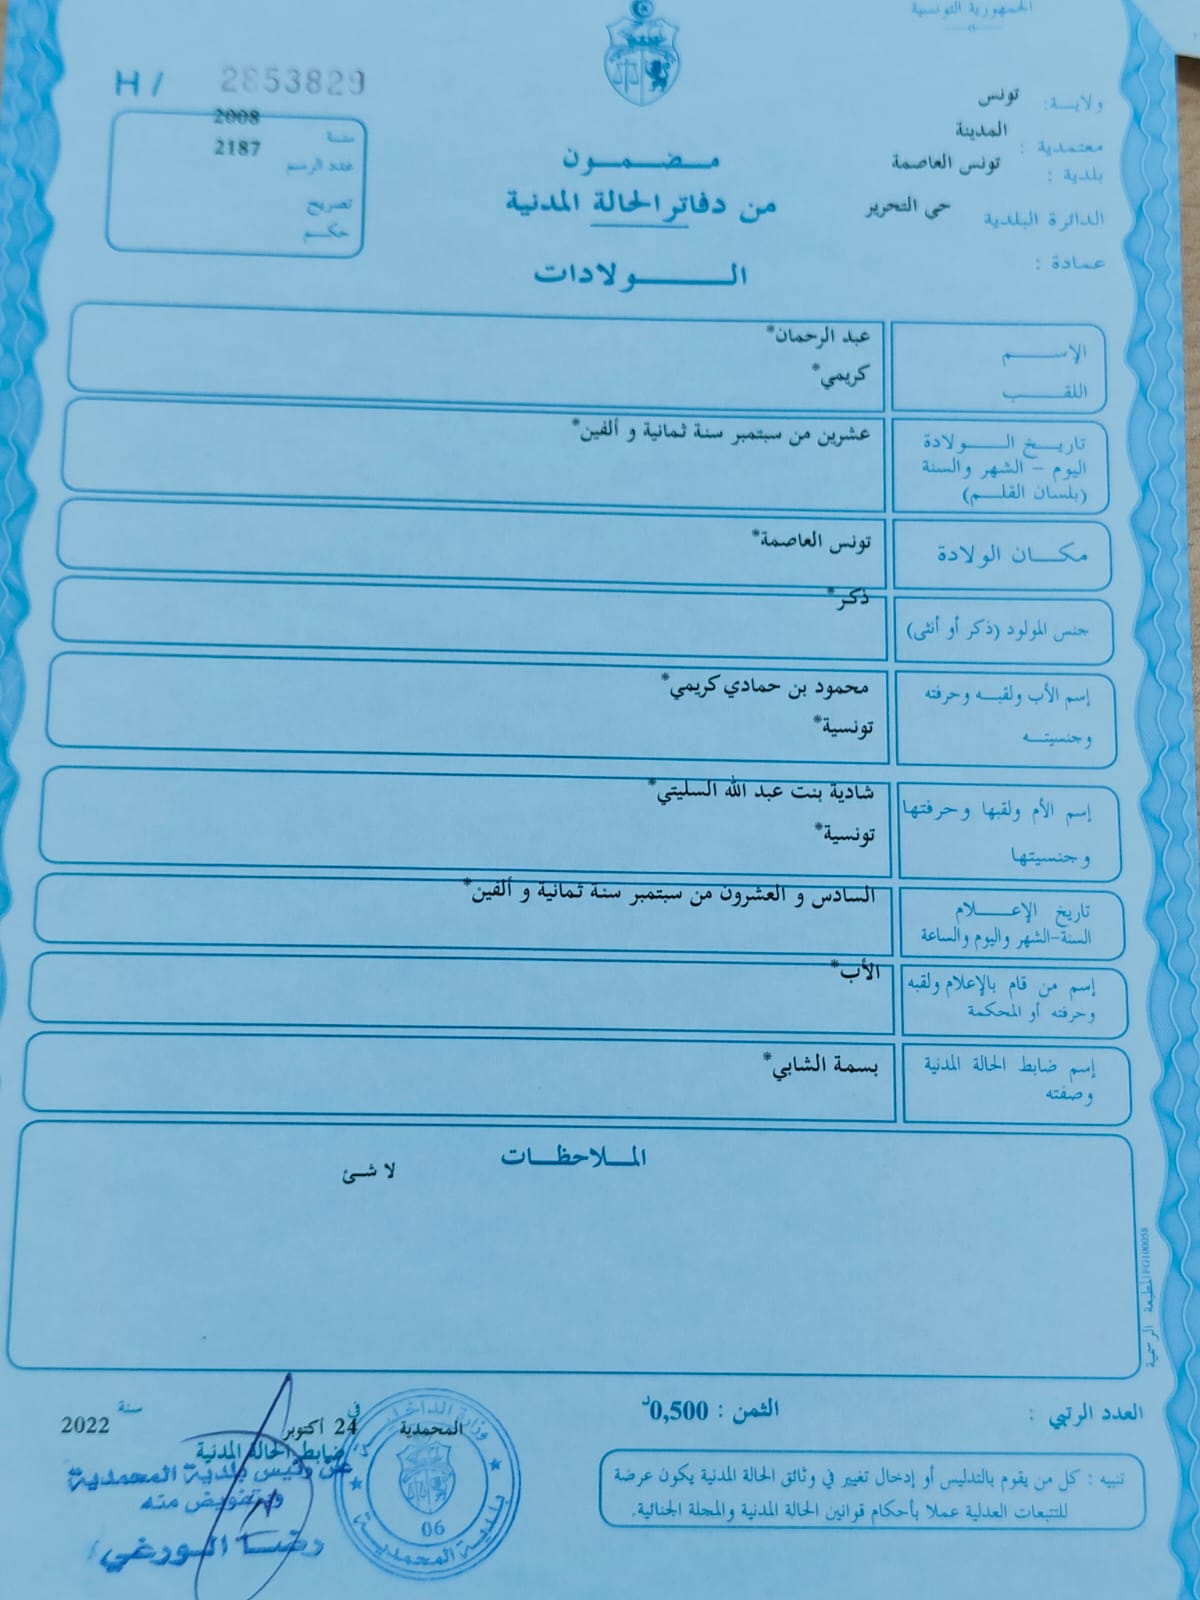 الجمهورية التونسية
H / 2853829
ولاية: تونس
معتمدية : المدينة
بلدية : تونس العاصمة
الدائرة البلدية حي التحرير
عمادة :
سنة 2008
عدد الرسم 2187
تصريح
حكم
مـضـمـــون
من دفاتر الحالة المدنية
الـــــولادات
الإســـم عبد الرحمان*
اللقـــب كريمي*
تاريـــخ الـــــولادة عشرين من سبتمبر سنة ثمانية و ألفين*
اليوم - الشهر والسنة
(بلسان القلـــم)
مكـــان الولادة تونس العاصمة*
جنس المولود (ذكر أو أنثى) ذكر*
إسم الأب ولقبـــه وحرفته محمود بن حمادي كريمي*
وجنسيتـــه تونسية*
إسم الأم ولقبها وحرفتها شادية بنت عبد الله السليتي*
وجنسيتها تونسية*
تاريخ الإعـــلام السادس و العشرون من سبتمبر سنة ثمانية و ألفين*
السنة-الشهر واليوم والساعة
إسم من قام بالإعلام ولقبه الأب*
وحرفته أو المحكمة
إسم ضابط الحالة المدنية بسمة الشابي*
وصفته
المـــلاحظـــات
لا شئ
المطبعة الرسمية FG100058
العدد الرتبي :
الثمن : 0,500د
تنبيه : كل من يقوم بالتدليس أو إدخال تغيير في وثائق الحالة المدنية يكون عرضة
للتتبعات العدلية عملا بأحكام قوانين الحالة المدنية والمجلة الجنائية.
المحمدية في 24 أكتوبر سنة 2022
ضابط الحالة المدنية
عن رئيس بلدية المحمدية
وبتفويض منه
رضا الورغي
وزارة الداخلية
06
بلدية المحمدية